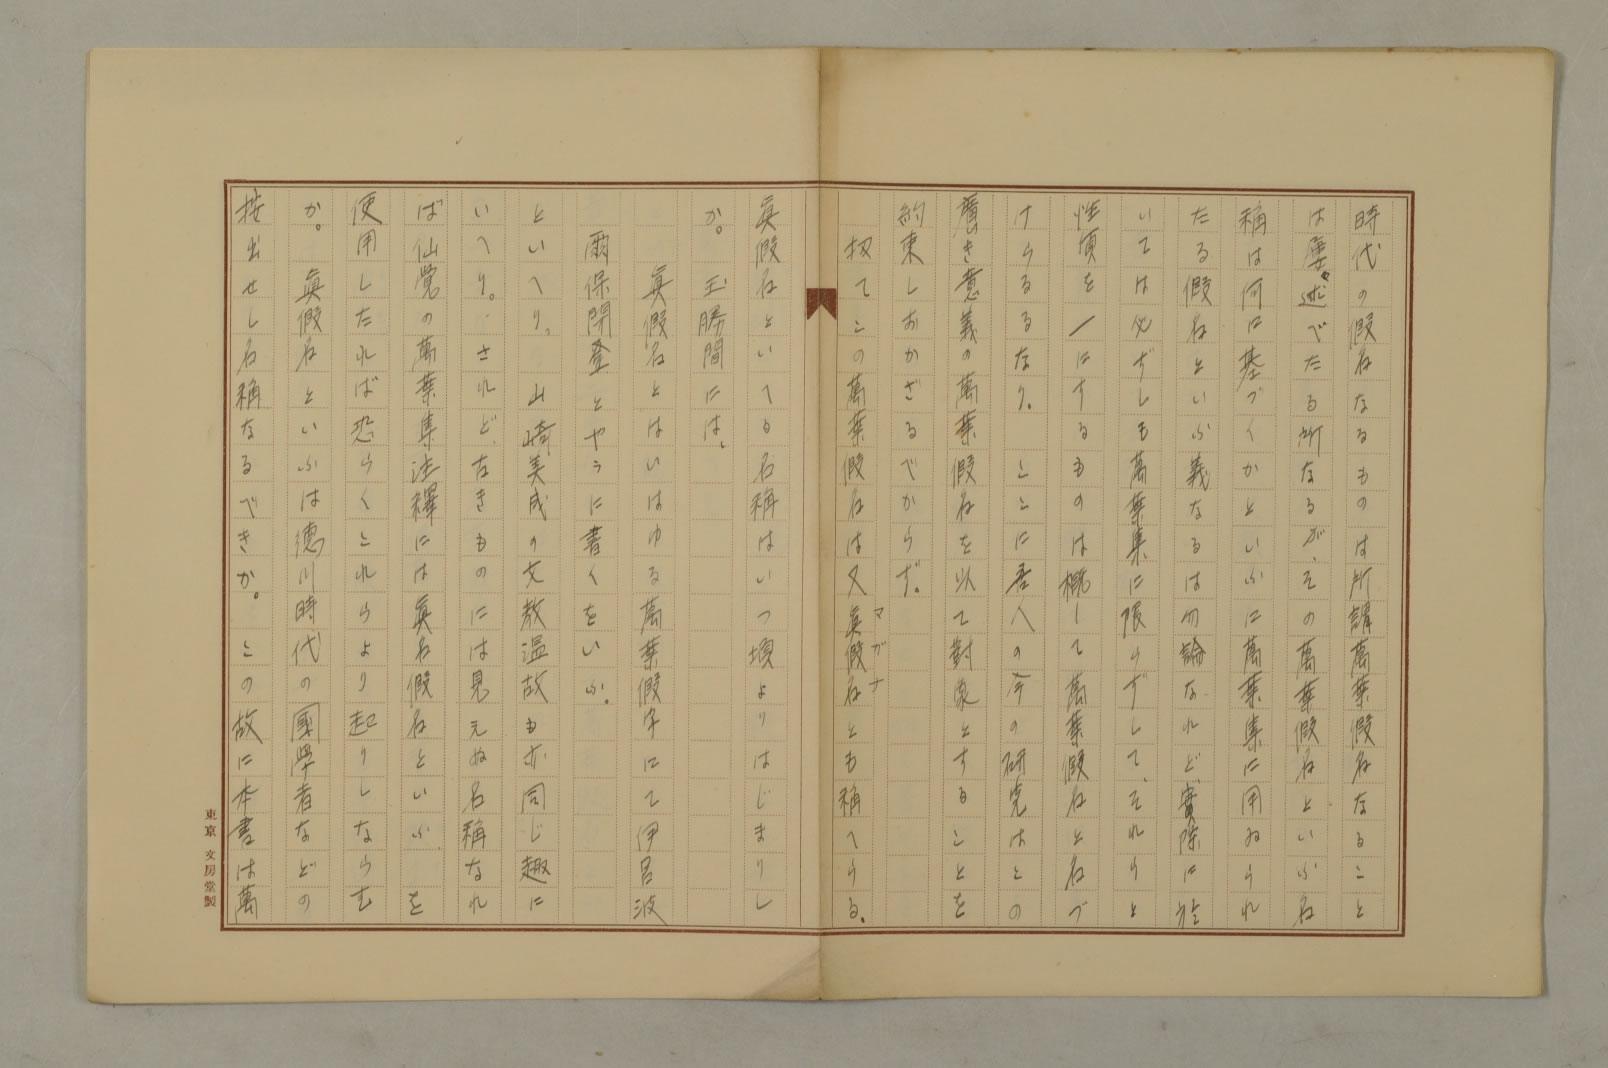 時代の假名なるものは所謂萬葉假名なること
は屡〻述べたる所なるが、その萬葉假名といふ名
稱は何に基づくかといふに萬葉集に用ゐられ
たる假名といふ義なるは勿論なれど、實際に於
いては必ずしも萬葉集に限らずして、それらと
性質を一にするものは概して萬葉假名と名づ
けらるるなり。ここに吾人の今の研究はこの
廣き意義の萬葉假名を以て對象とすることを
約束しおかざるべからず。
扨てこの萬葉假名は又眞假名とも稱へらる。
マガナ
眞假名といへる名稱はいつ頃よりはじまりし
か。玉勝間には、
眞假名とはいはゆる萬葉假字にて伊呂波
爾保閇登とやうに書くをいふ。
といへり。山崎美成の文教温故も亦同じ趣に
いへり。されど、古きものには見えぬ名稱なれ
ば仙覺の萬葉集注釋には眞名假名といふ を
使用したれば恐らくこれらより起りしならむ
か。眞假名といふは德川時代の國學者などの
按出せし名稱なるべきか。この故に本書は萬
東京 文房堂製